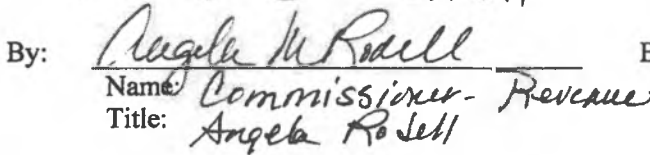 By: Angela M Rodell
Name: Commissioner - Revenue
Title: Angela Rodell